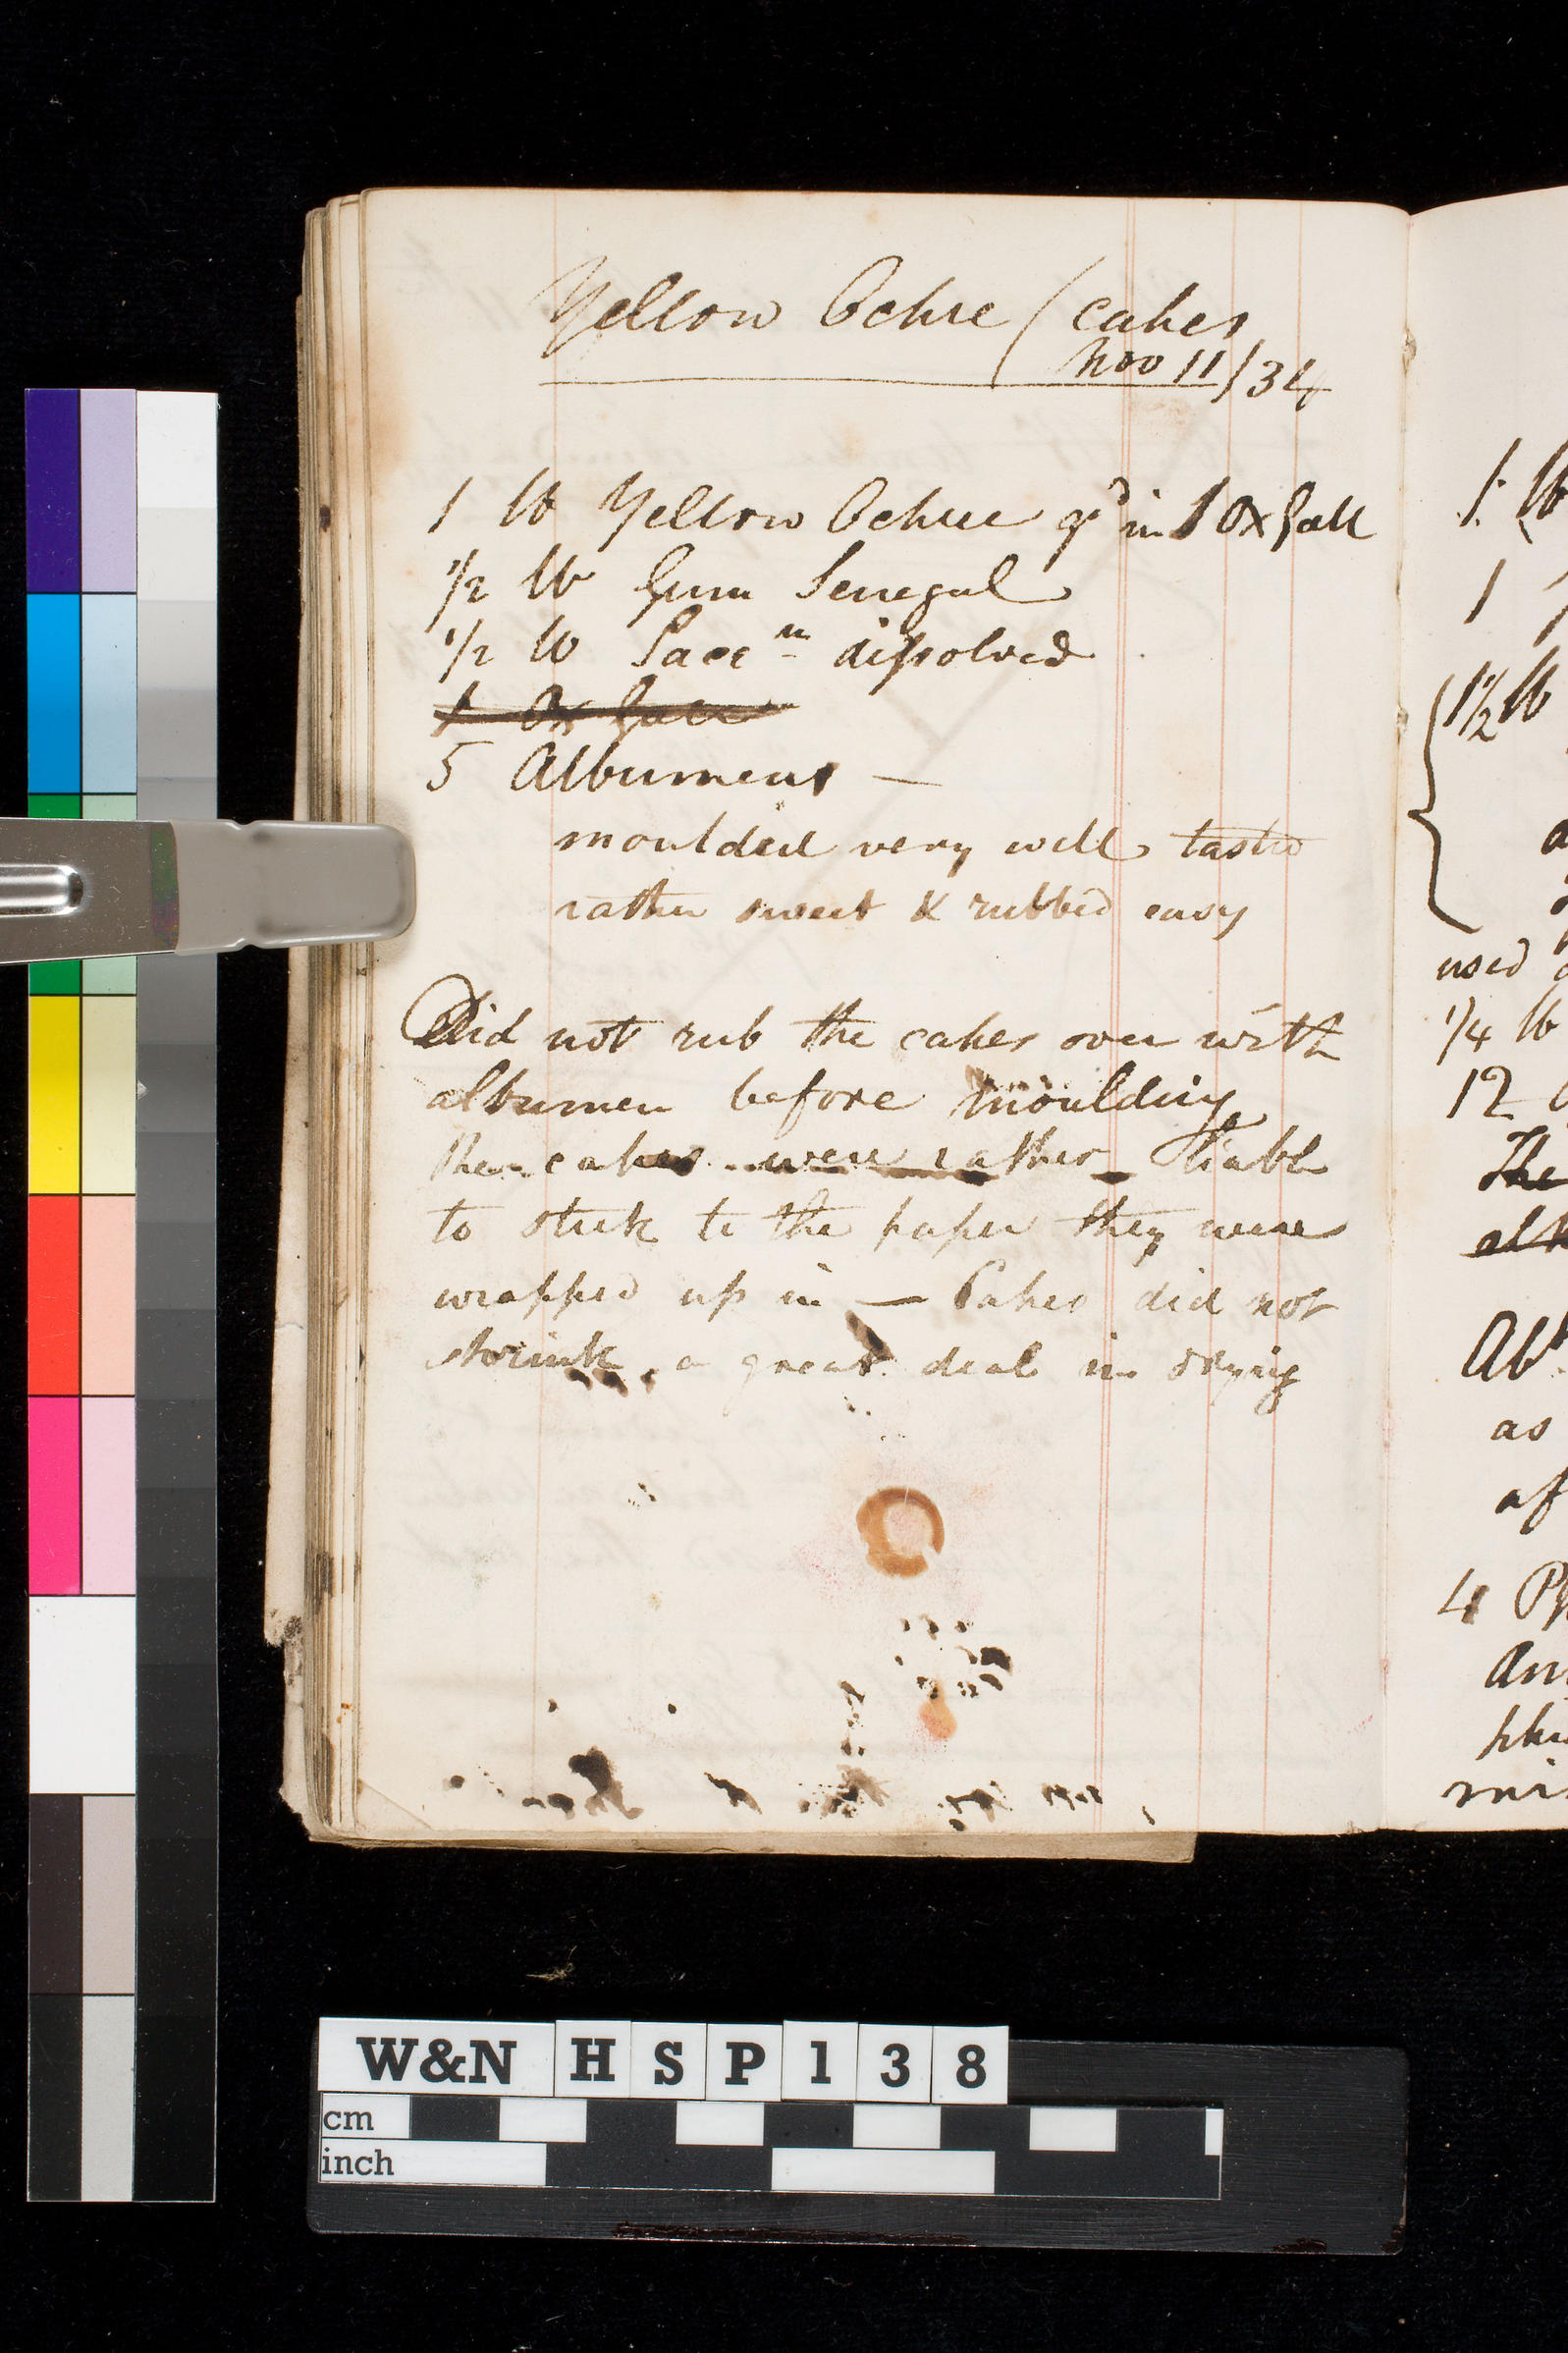 Yellow Ochre (cakes
Nov 11/34
1 lb Yellow Ochre gd in 1 Ox Gall
1/2 lb Gum Senegal
1/2 lb Saccm dissolved
1 Ox Gall
5 Albumens —
moulded very well tasted
rather sweet & rubbed easy
Did not rub the cakes over with
albumen before moulding
the cakes were rather liable
to stick to the paper they were
wrapped up in — Cakes did not
shrink a great deal in drying
1 lb
1
1 1/2 lb
used
1/4 lb
12
The
as
of
4
W&N HSP138
cm
inch